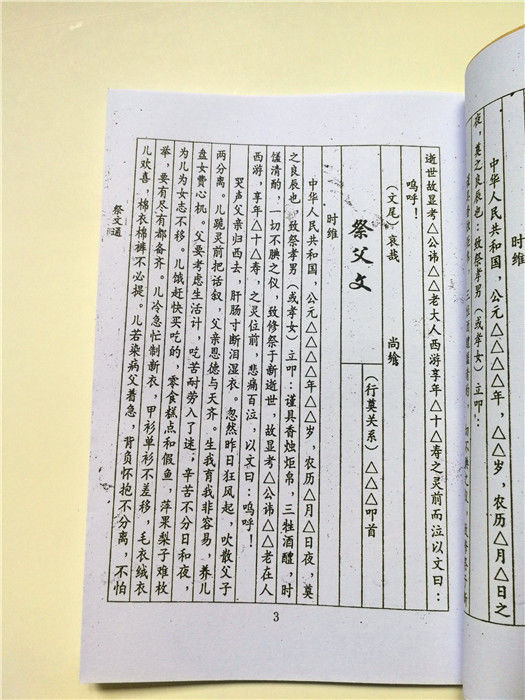 逝世故显考△公讳△△老大人西游享年△十△寿之灵前而泣以文曰：
呜呼！
（文尾）哀哉 尚飨
（行奠关系）△△△叩首
祭父文
时维
中华人民共和国，公元△△△△年，△△岁，农历△月△日夜，奠
之良辰也，致祭孝男（或孝女）立叩：谨具香烛炬帛，三牲酒醴，时
馐清酌，一切不腆之仪，致修祭于新逝世，故显考△公讳△△老在人
西游，享年△十△寿，之灵位前，悲痛百泣，以文曰：呜呼！
哭声父亲归西去，肝肠寸断泪湿衣。忽然昨日狂风起，吹散父子
两分离。儿跪灵前把话叙，父亲恩德与天齐。生我育我非容易，养儿
盘女费心机。父要考虑生活计，吃苦耐劳入了迷，辛苦不分日和夜，
为儿为女志不移。儿饿赶快买吃的，零食糕点和假鱼，萍果梨子难枚
举，要有尽有都备齐。儿冷急忙制新衣，甲衫单衫不差移，毛衣绒衣
儿欢喜，棉衣棉裤不必提。儿若染病父着急，背负怀抱不分离，不怕
祭文通
3
时维
中华人民共和国，公元△△△△年，△△岁，农历△月△日之
夜，奠之良辰也：致祭孝男（或孝女）立叩：